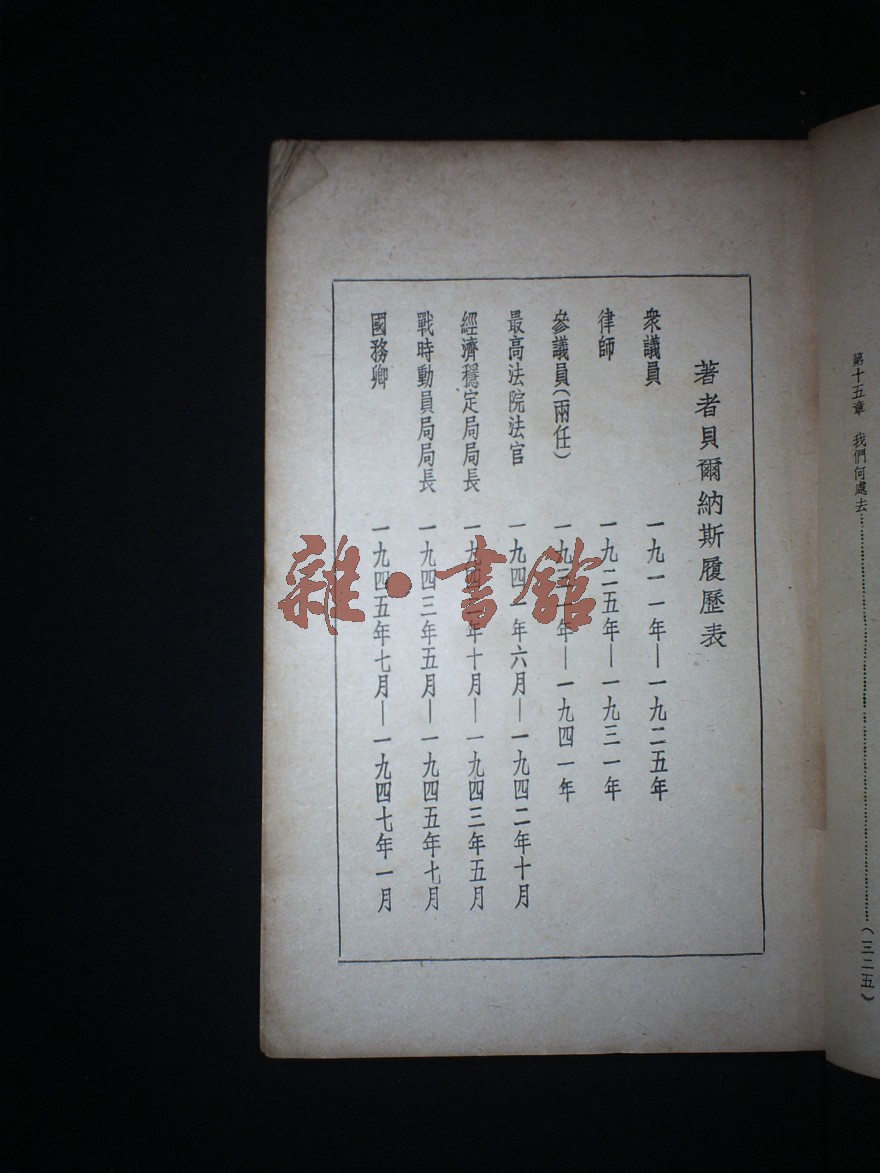 第十五章　我們何處去……………………………………（三二五）
著者貝爾納斯履歷表
衆議員　一九一一年—一九二五年
律師　一九二五年—一九三一年
參議員（兩任）　一九三一年—一九四一年
最高法院法官　一九四一年六月—一九四二年十月
經濟穩定局局長　一九四二年十月—一九四三年五月
戰時動員局局長　一九四三年五月—一九四五年七月
國務卿　一九四五年七月—一九四七年一月
雜·書館